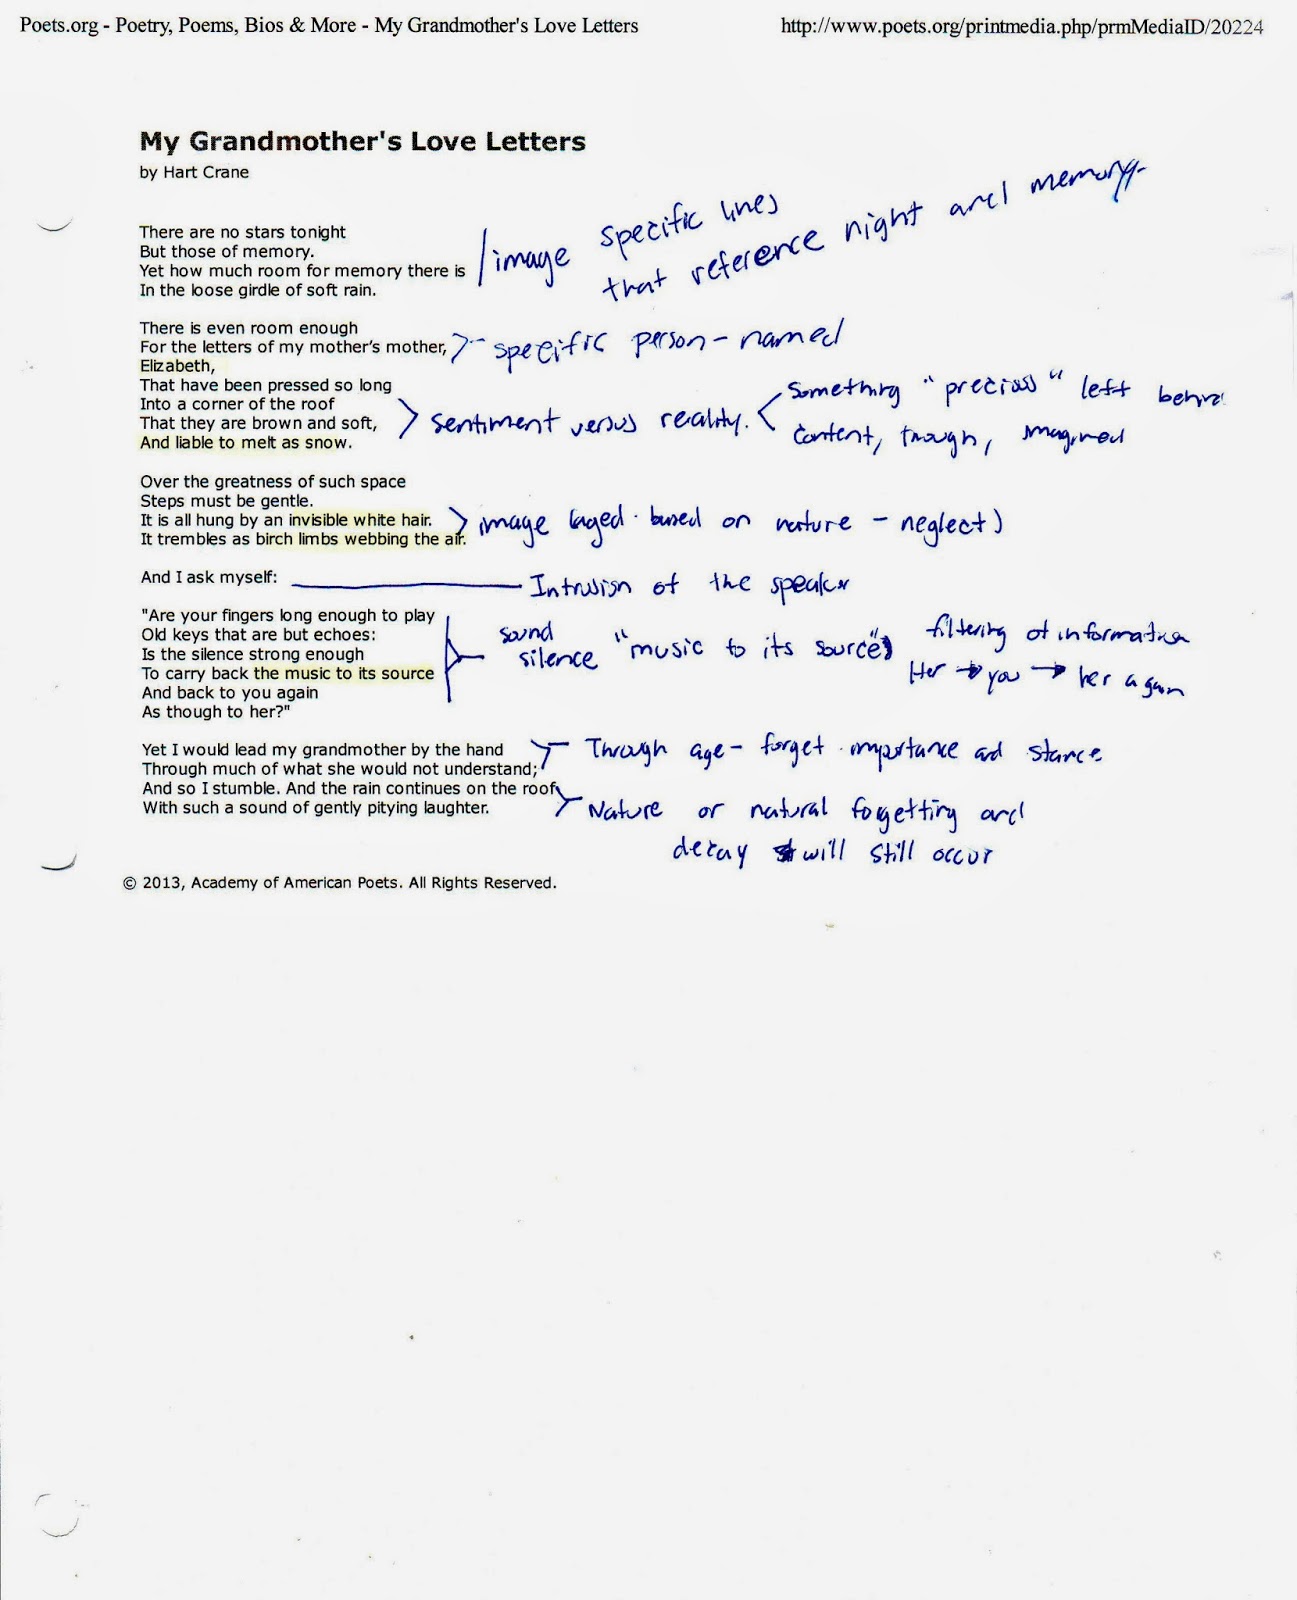 Poets.org - Poetry, Poems, Bios & More - My Grandmother's Love Letters
http://www.poets.org/printmedia.php/prmMediaID/20224
My Grandmother's Love Letters
by Hart Crane
There are no stars tonight
But those of memory.
Yet how much room for memory there is
In the loose girdle of soft rain.
image specific lines
that reference night and memory.
There is even room enough
For the letters of my mother's mother,
Elizabeth,
- specific person - named
That have been pressed so long
Into a corner of the roof
That they are brown and soft,
And liable to melt as snow.
sentiment versus reality.
something "precious" left behind
content, though, imagined
Over the greatness of such space
Steps must be gentle.
It is all hung by an invisible white hair.
It trembles as birch limbs webbing the air.
image (aged. based on nature - neglect)
And I ask myself:
Intrusion of the speaker
"Are your fingers long enough to play
Old keys that are but echoes:
Is the silence strong enough
To carry back the music to its source
And back to you again
As though to her?"
sound
silence "music to its source"
filtering of information
Her → you → her again
Yet I would lead my grandmother by the hand
Through much of what she would not understand;
And so I stumble. And the rain continues on the roof
With such a sound of gently pitying laughter.
Through age - forget importance and stance
Nature or natural forgetting and
decay will still occur
© 2013, Academy of American Poets. All Rights Reserved.